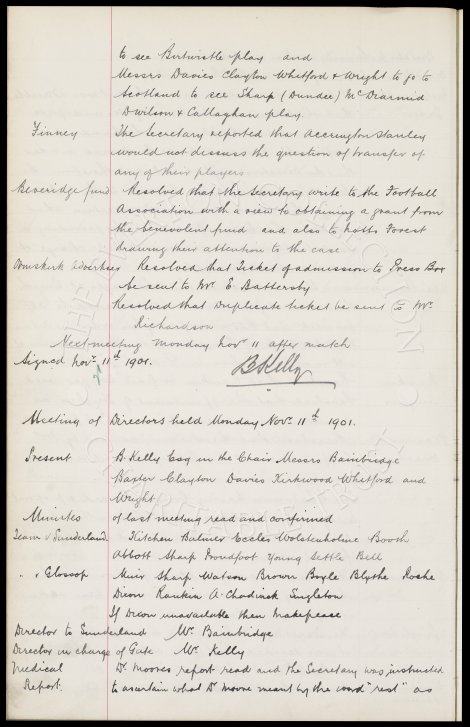 to see Birtwistle play and
Messrs Davies Clayton Whitford & Wright to go to
Scotland to see Sharp (Dundee) McDiarmid
D Wilson & Callaghan play.
Finney The Secretary reported that Accrington Stanley
would not discuss the question of transfer of
any of their players
Beveridge fund Resolved that the Secretary write to the Football
Association with a view to obtaining a grant from
the benevolent fund and also to Notts Forest
drawing their attention to the case
Ormskirk Advertiser Resolved that Ticket of admission to Press Box
be sent to Mr E. Battersby
Resolved that Duplicate ticket be sent to Mr
Richardson
Next meeting Monday Novr 11 after match
Signed Novr 11th 1901.
B Kelly
Meeting of Directors held Monday Novr 11th 1901.
Present B. Kelly Esq in the Chair Messrs Bainbridge
Baxter Clayton Davies Kirkwood Whitford and
Wright
Minutes of last meeting read and confirmed
Team v Sunderland Kitchen Balmer Eccles Wolstenholme Booth
Abbott Sharp Proudfoot Young Settle Bell
" v Glossop Muir Sharp Watson Brown Boyle Blythe Roche
Dixon Rankin A. Chadwick Singleton
If Dixon unavailable then Makepeace
Director to Sunderland Mr Bainbridge
Director in charge of Gate Mr Kelly
Medical Dr Moores report read and the Secretary was instructed
Report. to ascertain what Dr Moore meant by the word "rest" as